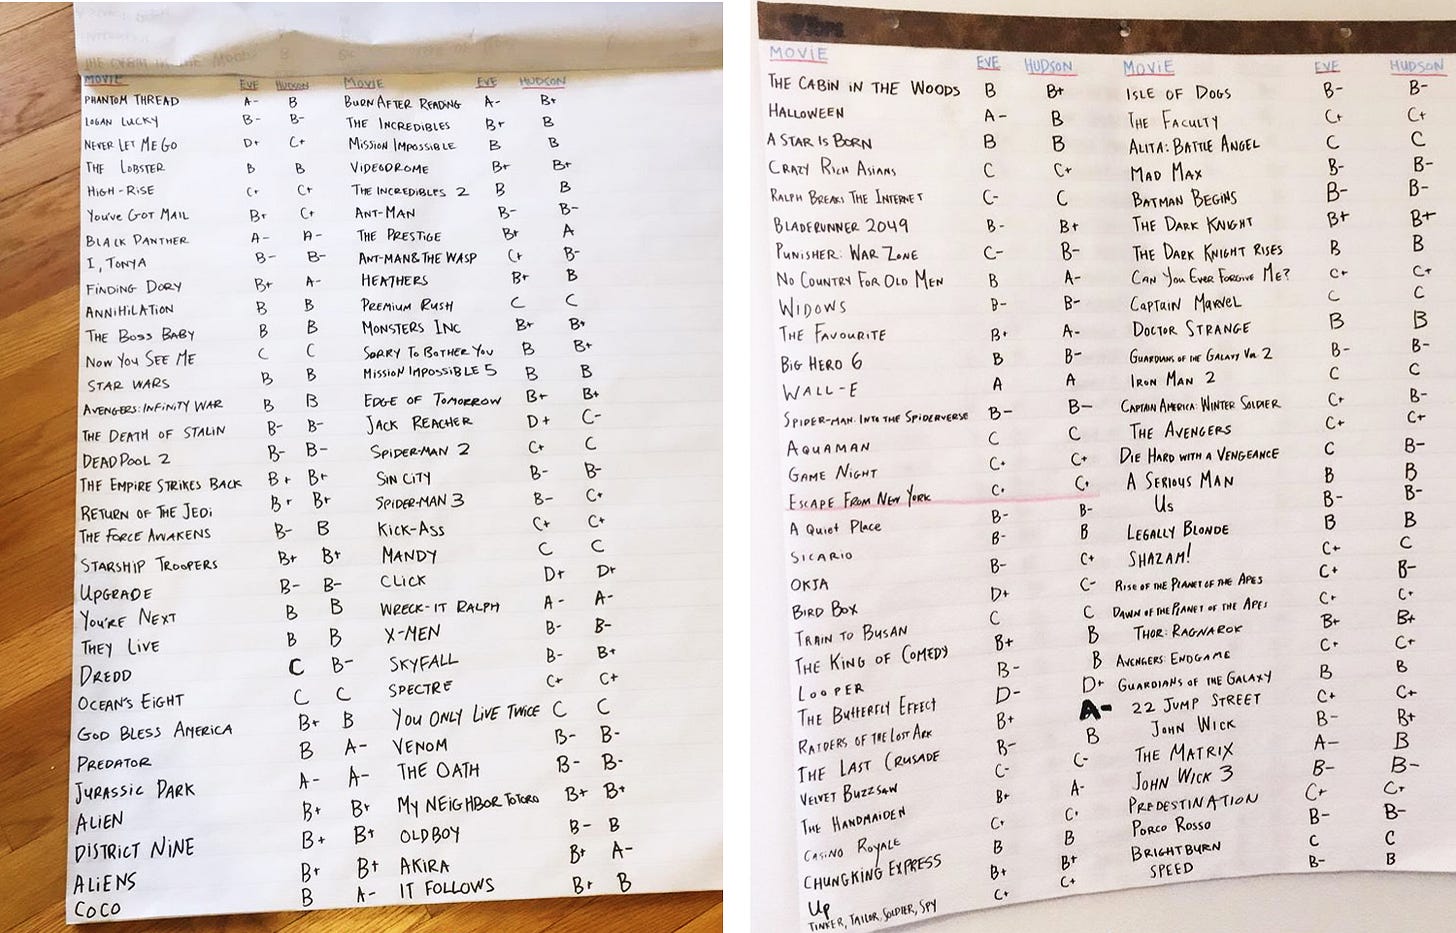 MOVIE EVE HUDSON
PHANTOM THREAD A- B
LOGAN LUCKY B- B-
NEVER LET ME GO D+ C+
THE LOBSTER B B
HIGH-RISE C+ C+
YOU'VE GOT MAIL B+ C+
BLACK PANTHER A- A-
I, TONYA B- B-
FINDING DORY B+ A-
ANNIHILATION B B
THE BOSS BABY B B
NOW YOU SEE ME C C
STAR WARS B B
AVENGERS: INFINITY WAR B B
THE DEATH OF STALIN B- B-
DEADPOOL 2 B- B-
THE EMPIRE STRIKES BACK B+ B+
RETURN OF THE JEDI B+ B+
THE FORCE AWAKENS B- B
STARSHIP TROOPERS B+ B+
UPGRADE B- B-
YOU'RE NEXT B B
THEY LIVE B B
DREDD C B-
OCEAN'S EIGHT C C
GOD BLESS AMERICA B+ B
PREDATOR B A-
JURASSIC PARK A- A-
ALIEN B+ B+
DISTRICT NINE B+ B+
ALIENS B+ B+
COCO B A-
MOVIE EVE HUDSON
BURN AFTER READING A- B+
THE INCREDIBLES B+ B
MISSION IMPOSSIBLE B B
VIDEODROME B+ B+
THE INCREDIBLES 2 B B
ANT-MAN B- B-
THE PRESTIGE B+ A
ANT-MAN&THE WASP C+ B-
HEATHERS B+ B
PREMIUM RUSH C C
MONSTERS INC B+ B+
SORRY TO BOTHER YOU B B+
MISSION IMPOSSIBLE 5 B B
EDGE OF TOMORROW B+ B+
JACK REACHER D+ C-
SPIDER-MAN 2 C+ C
SIN CITY B- B-
SPIDER-MAN 3 B- C+
KICK-ASS C+ C+
MANDY C C
CLICK D+ D+
WRECK-IT RALPH A- A-
X-MEN B- B-
SKYFALL B- B+
SPECTRE C+ C+
YOU ONLY LIVE TWICE C C
VENOM B- B-
THE OATH B- B-
MY NEIGHBOR TOTORO B+ B+
OLDBOY B- B
AKIRA B+ A-
IT FOLLOWS B+ B
MOVIE EVE HUDSON
THE CABIN IN THE WOODS B B+
HALLOWEEN A- B
A STAR IS BORN B B
CRAZY RICH ASIANS C C+
RALPH BREAKS THE INTERNET C- C
BLADERUNNER 2049 B- B+
PUNISHER: WAR ZONE C- B-
NO COUNTRY FOR OLD MEN B A-
WIDOWS B- B-
THE FAVOURITE B+ A-
BIG HERO 6 B B-
WALL-E A A
SPIDER-MAN: INTO THE SPIDERVERSE B- B-
AQUAMAN C C
GAME NIGHT C+ C+
ESCAPE FROM NEW YORK C+ C+
A QUIET PLACE B- B-
SICARIO B- B
OKJA B- C+
BIRD BOX D+ C-
TRAIN TO BUSAN C C
THE KING OF COMEDY B+ B
LOOPER B- B
THE BUTTERFLY EFFECT D- D+
RAIDERS OF THE LOST ARK B+ A-
THE LAST CRUSADE B- B
VELVET BUZZSAW C- C-
THE HANDMAIDEN B+ A-
CASINO ROYALE C+ C+
CHUNGKING EXPRESS B B
UP B+ B+
TINKER, TAILOR, SOLDIER, SPY C+ C+
MOVIE EVE HUDSON
ISLE OF DOGS B- B-
THE FACULTY C+ C+
ALITA: BATTLE ANGEL C C
MAD MAX B- B-
BATMAN BEGINS B- B-
THE DARK KNIGHT B+ B+
THE DARK KNIGHT RISES B B
CAN YOU EVER FORGIVE ME? C+ C+
CAPTAIN MARVEL C C
DOCTOR STRANGE B B
GUARDIANS OF THE GALAXY VOL 2 B- B-
IRON MAN 2 C C
CAPTAIN AMERICA: WINTER SOLDIER C+ B-
THE AVENGERS C+ C+
DIE HARD WITH A VENGEANCE C B-
A SERIOUS MAN B B
US B- B-
LEGALLY BLONDE B B
SHAZAM! C+ C
RISE OF THE PLANET OF THE APES C+ B-
DAWN OF THE PLANET OF THE APES C+ C+
THOR: RAGNAROK B+ B+
AVENGERS: ENDGAME C+ C+
GUARDIANS OF THE GALAXY B B
22 JUMP STREET C+ C+
JOHN WICK B- B+
THE MATRIX A- B
JOHN WICK 3 B- B-
PREDESTINATION C+ C+
PORCO ROSSO B- B-
BRIGHTBURN C C
SPEED B- B